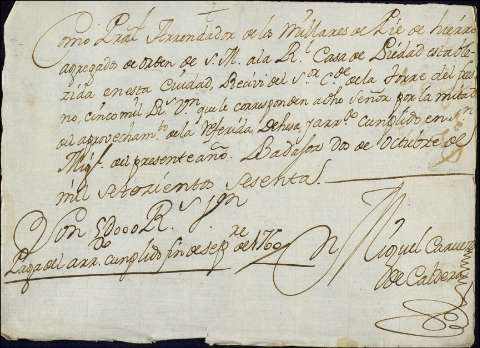 Como Pral. Arrendador de los Millares de Pie de hierro
agregados de orden de S. M. a la Rl. Casa de Piedad estable
zida en esta Ciudad, Recivi del Sor. Cde. de la Torre del fres
no, cinco mil Rs. Vn. que le corresponden a dho Señor por la mitad
del aprovechamto. de la referida Dehesa, y arrdo. cumplido en Sn.
Migl. del presente año. Badajoz Dos de Octubre de
mil setecientos sesenta.
Son 5Ꝺ000 Rs. Vn.
Paga del arrdo. cumplido fin de Sepre. de 1760
Miguel
de Caldera